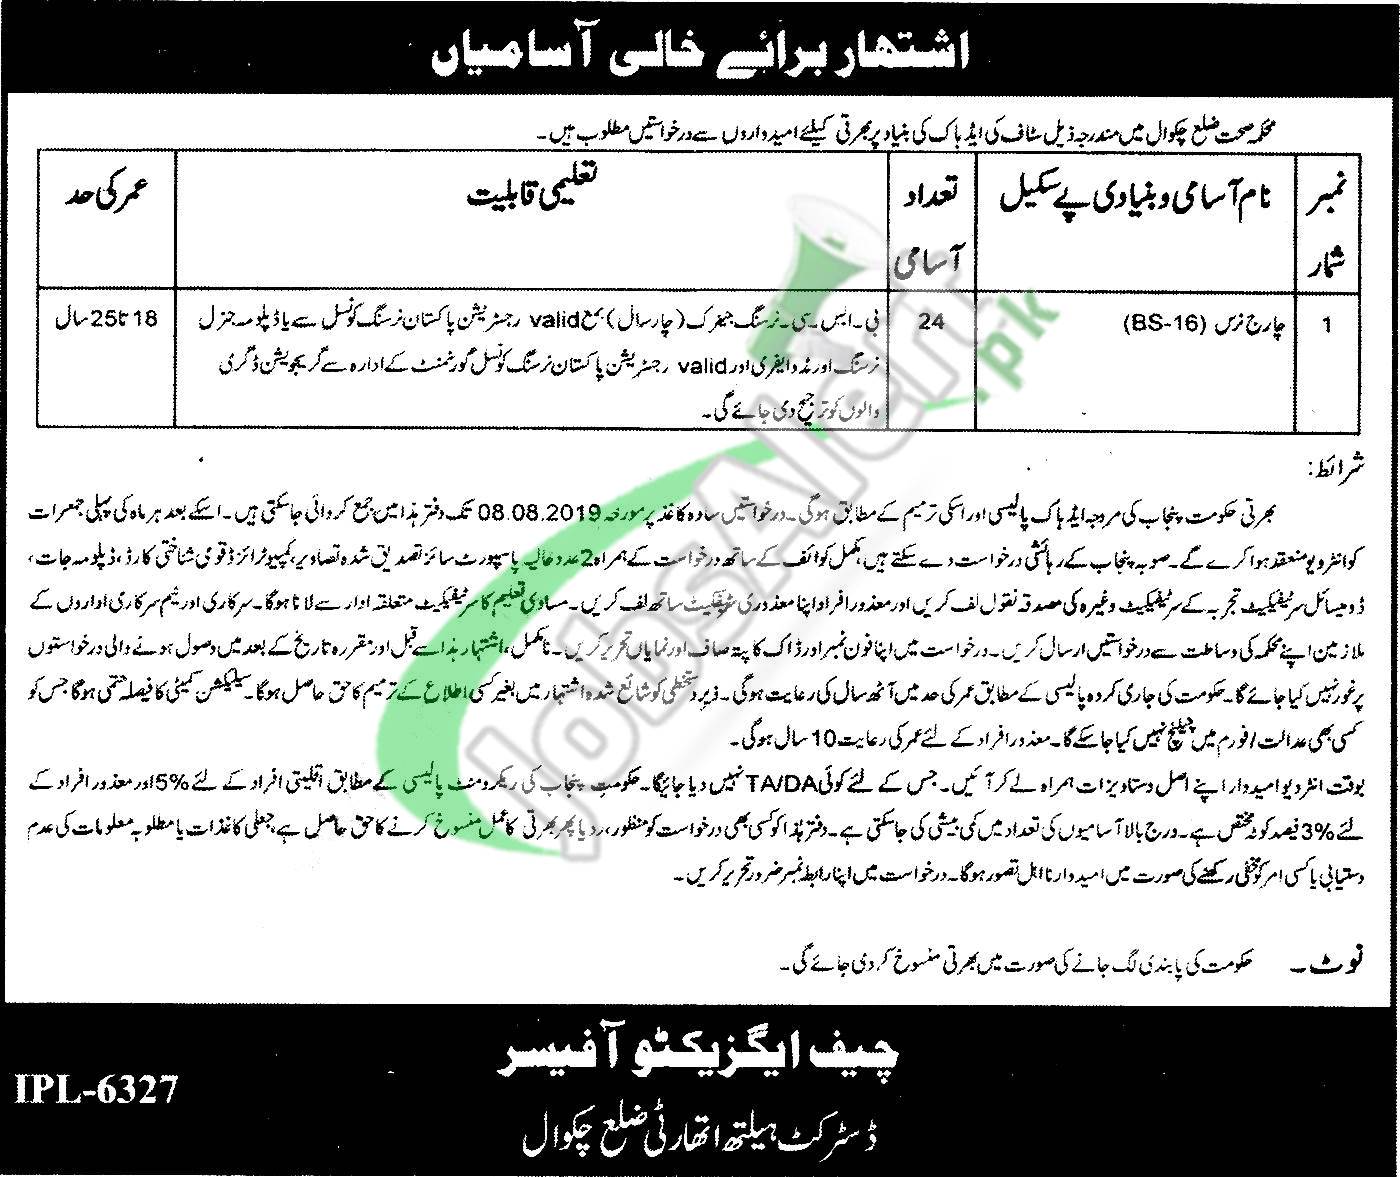 اشتہار برائے خالی آسامیاں
محکمہ صحت ضلع چکوال میں مندرجہ ذیل سٹاف کی ایڈہاک کی بنیاد پر بھرتی کیلئے امیدواروں سے درخواستیں مطلوب ہیں۔
نمبر شمار
نام آسامی و بنیادی پے سکیل
تعداد آسامی
تعلیمی قابلیت
عمر کی حد
1
چارج نرس (BS-16)
24
بی۔ایس۔سی۔نرسنگ جنیرک (چار سال) بمع valid رجسٹریشن پاکستان نرسنگ کونسل سے یا ڈپلومہ جنرل
نرسنگ اور مڈوائفری اور valid رجسٹریشن پاکستان نرسنگ کونسل گورنمنٹ کے ادارہ سے گریجویشن ڈگری
والوں کو ترجیح دی جائے گی۔
18 تا 25 سال
شرائط:
بھرتی حکومت پنجاب کی مروجہ ایڈہاک پالیسی اور اسکی ترمیم کے مطابق ہوگی۔ درخواستیں سادہ کاغذ پر مورخہ 08.08.2019 تک دفتر ہذا میں جمع کروائی جاسکتی ہیں۔ اسکے بعد ہر ماہ کی پہلی جمعرات
کو انٹرویو منعقد ہوا کرے گے۔ صوبہ پنجاب کے رہائشی درخواست دے سکتے ہیں، مکمل کوائف کے ساتھ درخواست کے ہمراہ 2 عدد حالیہ پاسپورٹ سائز تصدیق شدہ تصاویر، کمپیوٹرائزڈ قومی شناختی کارڈ، ڈپلومہ جات،
ڈومیسائل سرٹیفکیٹ تجربہ کے سرٹیفکیٹ وغیرہ کی مصدقہ نقول لف کریں اور معذور افراد اپنا معذوری سرٹیفکیٹ ساتھ لف کریں۔ مساوی تعلیم کا سرٹیفکیٹ متعلقہ ادارے سے لانا ہوگا۔ سرکاری اور نیم سرکاری اداروں کے
ملازمین اپنے محکمہ کی وساطت سے درخواستیں ارسال کریں۔ درخواست میں اپنا فون نمبر اور ڈاک کا پتہ صاف اور نمایاں تحریر کریں۔ نامکمل، اشتہار ہذا سے قبل اور مقررہ تاریخ کے بعد میں وصول ہونے والی درخواستوں
پر غور نہیں کیا جائے گا۔ حکومت کی جاری کردہ پالیسی کے مطابق عمر کی حد میں آٹھ سال کی رعایت ہوگی۔ زیر دستخطی کو شائع شدہ اشتہار میں بغیر کسی اطلاع کے ترمیم کا حق حاصل ہوگا۔ سلیکشن کمیٹی کا فیصلہ حتمی ہوگا جس کو
کسی بھی عدالت / فورم میں چیلنج نہیں کیا جاسکے گا۔ معذور افراد کے لئے عمر کی رعایت 10 سال ہوگی۔
بوقت انٹرویو امیدوار اپنے اصل دستاویزات ہمراہ لے کر آئیں۔ جس کے لئے کوئی TA/DA نہیں دیا جائیگا۔ حکومت پنجاب کی ریکروٹمنٹ پالیسی کے مطابق اقلیتی افراد کے لئے 5% اور معذور افراد کے
لئے 3% فیصد کوٹہ مختص ہے۔ درج بالا آسامیوں کی تعداد میں کمی بیشی کی جاسکتی ہے۔ دفتر ہذا کو کسی بھی درخواست کو منظور، رد یا پھر بھرتی کا عمل منسوخ کرنے کا حق حاصل ہے، جعلی کاغذات یا مطلوبہ معلومات کی عدم
دستیابی یا کسی امر کو مخفی رکھنے کی صورت میں امیدوار نااہل تصور ہوگا۔ درخواست میں اپنا رابطہ نمبر ضرور تحریر کریں۔
نوٹ۔ حکومت کی پابندی لگ جانے کی صورت میں بھرتی منسوخ کردی جائے گی۔
چیف ایگزیکٹو آفیسر
ڈسٹرکٹ ہیلتھ اتھارٹی ضلع چکوال
IPL-6327
JobsAlert.pk